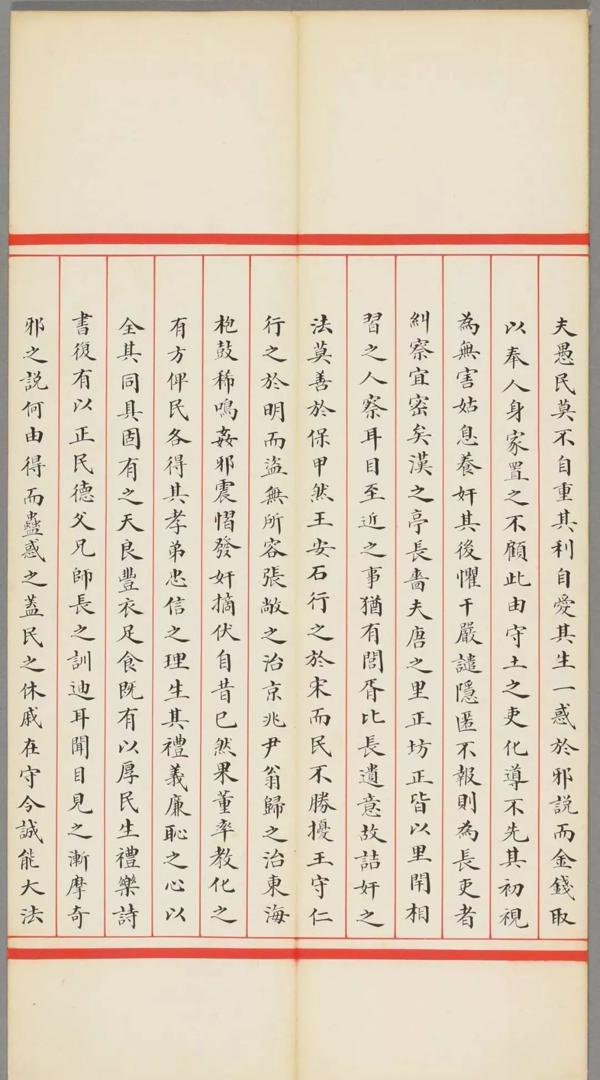 夫愚民莫不自重其利自愛其生一惑於邪説而金錢取
以奉人身家置之不顧此由守土之吏化導不先其初視
為無害姑息養奸其後懼干嚴譴隱匿不報則為長吏者
糾察宜密矣漢之亭長嗇夫唐之里正坊正皆以里閈相
習之人察耳目至近之事猶有閭胥比長遺意故詰奸之
法莫善於保甲然王安石行之於宋而民不勝擾王守仁
行之於明而盜無所容張敞之治京兆尹翁歸之治東海
枹鼓稀鳴姦邪震慴發奸摘伏自昔已然果董率教化之
有方俾民各得其孝弟忠信之理生其禮義廉恥之心以
全其同具固有之天良豐衣足食既有以厚民生禮樂詩
書復有以正民德父兄師長之訓迪耳聞目見之漸摩奇
邪之説何由得而蠱惑之蓋民之休戚在守令誠能大法